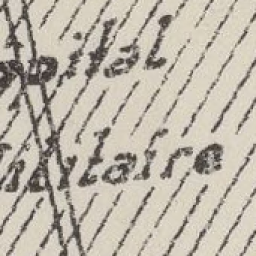 opital
Militaire